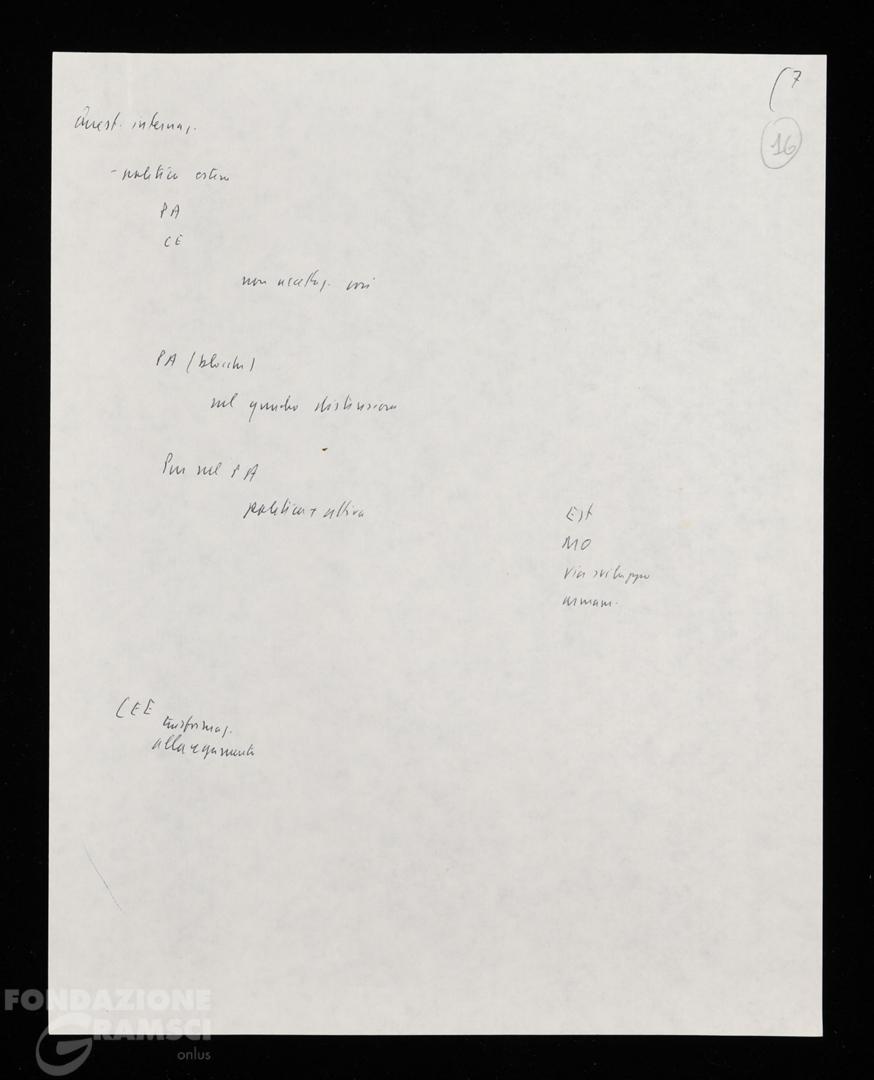 (7
16
Quest. internaz.
- politica estera
PA
CE
non accettaz. così
PA (blocchi)
nel quadro distensione
Pur nel PA
politica + attiva
Est
MO
via sviluppo
armam.
CEE
trasformaz.
allargamento
FONDAZIONE
GRAMSCI
onlus